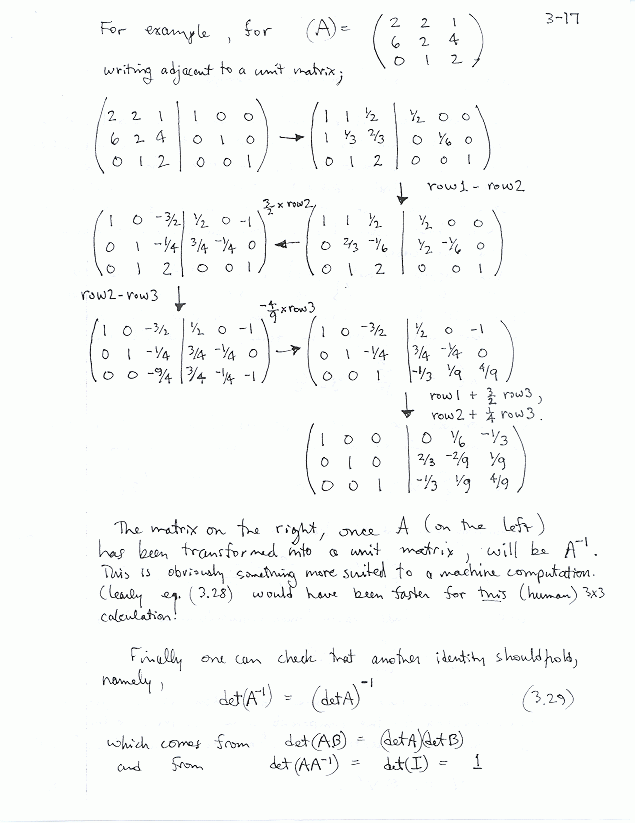 3-17
For example, for (A) = ( 2 2 1
6 2 4
0 1 2 )
writing adjacent to a unit matrix;
( 2 2 1 | 1 0 0 ) → ( 1 1 1/2 | 1/2 0 0 )
( 6 2 4 | 0 1 0 ) ( 1 1/3 2/3 | 0 1/6 0 )
( 0 1 2 | 0 0 1 ) ( 0 1 2 | 0 0 1 )
↓ row1 - row2
3/2 × row2
( 1 0 -3/2 | 1/2 0 -1 ) ← ( 1 1 1/2 | 1/2 0 0 )
( 0 1 -1/4 | 3/4 -1/4 0 ) ( 0 2/3 -1/6 | 1/2 -1/6 0 )
( 0 1 2 | 0 0 1 ) ( 0 1 2 | 0 0 1 )
row2-row3 ↓
-4/9 × row3
( 1 0 -3/2 | 1/2 0 -1 ) → ( 1 0 -3/2 | 1/2 0 -1 )
( 0 1 -1/4 | 3/4 -1/4 0 ) ( 0 1 -1/4 | 3/4 -1/4 0 )
( 0 0 -9/4 | 3/4 -1/4 -1 ) ( 0 0 1 | -1/3 1/9 4/9 )
↓ row1 + 3/2 row3,
row2 + 1/4 row3.
( 1 0 0 | 0 1/6 -1/3 )
( 0 1 0 | 2/3 -2/9 1/9 )
( 0 0 1 | -1/3 1/9 4/9 )
The matrix on the right, once A (on the left)
has been transformed into a unit matrix, will be A⁻¹.
This is obviously something more suited to a machine computation.
Clearly eq. (3.28) would have been faster for this (human) 3x3
calculation!
Finally one can check that another identity should hold,
namely,
det(A⁻¹) = (det A)⁻¹ (3.29)
which comes from det(AB) = (det A)(det B)
and from det(AA⁻¹) = det(I) = 1